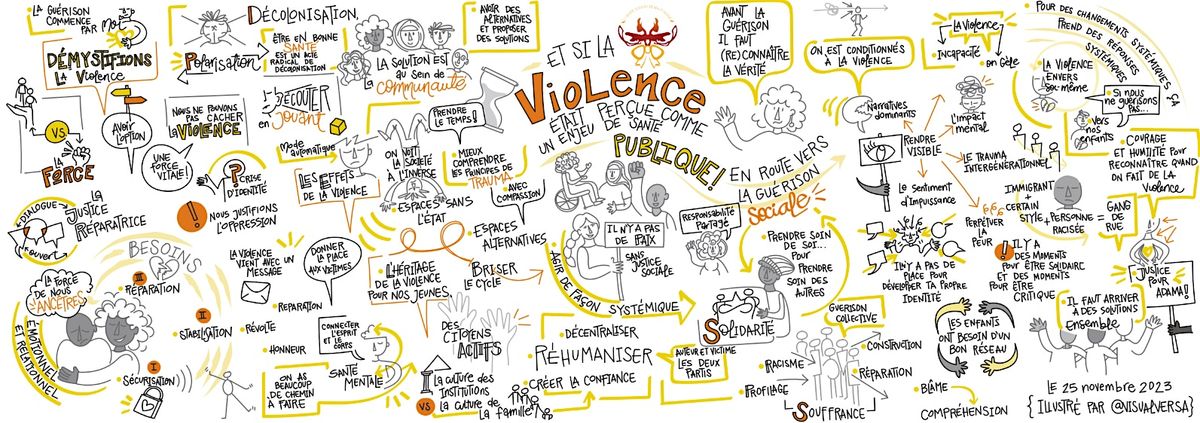 LA GUÉRISON
COMMENCE
PAR Moi
DÉMYSTIFIONS
LA Violence
VS
LA
FORCE
AVOIR
L'OPTION
Polarisation
DÉCOLONISATION
ÊTRE EN BONNE
SANTÉ
EST UN ACTE
RADICAL DE
DÉCOLONISATION
NOUS NE POUVONS
PAS CACHER
LA VIOLENCE
UNE
FORCE
VITALE!
? CRISE
D'IDENTITÉ
! NOUS JUSTIFIONS
L'OPPRESSION
ÉCOUTER
en JOUANT
LA SOLUTION EST
AU SEIN DE LA
COMMUNAUTÉ
AVOIR DES
ALTERNATIVES
ET PROPOSER
DES SOLUTIONS
PRENDRE
LE TEMPS!
MIEUX
COMPRENDRE
LES PRINCIPES DE
TRAUMA
AVEC
COMPASSION
Mode
automatique
LES EFFETS
DE LA VIOLENCE
ON NUIT
LA SOCIÉTÉ
À L'INVERSE
ESPACES SANS
L'ÉTAT
ESPACES
ALTERNATIVES
BRISER
LE CYCLE
DIALOGUE
ouvert
LA
JUSTICE
RÉPARATRICE
BESOINS
LA FORCE
DE NOUS
ANCÊTRES
ÉMOTIONNEL
ET RELATIONNEL
III
RÉPARATION
II
STABILISATION
I
SÉCURISATION
LA VIOLENCE
VIENT AVEC UN
MESSAGE
REPARATION
RÉVOLTE
HONNEUR
ON AS
BEAUCOUP
DE CHEMIN
A FAIRE
DONNER
LA PLACE
AUX VICTIMES
CONNECTER
L'ESPRIT
ET LE
CORPS
SANTÉ
MENTALE
L'HÉRITAGE
DE LA VIOLENCE
POUR NOS JEUNES
DES
CITOYENS
ACTIFS
LA CULTURE DES
INSTITUTIONS
VS LA CULTURE DE
LA FAMILLE
ET SI LA
VIOLENCE
ÉTAIT PERÇUE COMME
UN ENJEU DE "SANTÉ"
PUBLIQUE!
IL N'Y A PAS
DE PAIX
SANS
JUSTICE
SOCIALE
AGIR DE FAÇON SYSTÉMIQUE
DÉCENTRALISER
RÉHUMANISER
CRÉER LA CONFIANCE
AUTEUR ET VICTIME
LES DEUX
PARTIS
RESPONSABILITÉ
PARTAGÉ
SOLIDARITÉ
AVANT LA
GUÉRISON
IL FAUT
(RE)CONNAÎTRE
LA VÉRITÉ
EN ROUTE VERS
LA GUÉRISON
sociale
PRENDRE SOIN
DE SOI...
POUR
PRENDRE
SOIN DES
AUTRES
GUERISON
COLLECTIVE
RACISME
PROFILAGE
SOUFFRANCE
CONSTRUCTION
RÉPARATION
ON EST CONDITIONNÉS
À LA VIOLENCE
Narratives
dominants
RENDRE
VISIBLE
L'IMPACT
MENTAL
LE TRAUMA
INTERGÉNÉRATIONNEL
Le Sentiment
d'Impuissance
PERPÉTUER
LA
PEUR
LA Violence
Incapacité
en Gèle
IL N'Y A PAS DE
PLACE POUR
DÉVELOPPER TA PROPRE
IDENTITÉ
LES ENFANTS
ONT BESOIN D'UN
BON RÉSEAU
BLÂME
COMPRÉHENSION
POUR DES CHANGEMENTS SYSTÉMIQUES ÇA
PREND DES RÉPONSES
SYSTÉMIQUES
LA VIOLENCE
ENVERS
SOI-même
Si nous
ne guérisons
PAS...
Vers
nos
enfants
COURAGE
ET HUMILITÉ POUR
RECONNAÎTRE QUAND
ON FAIT DE LA
Violence
IMMIGRANT
+
CERTAIN
STYLE + PERSONNE
RACISÉE
=
GANG
DE
RUE
! IL Y A
DES MOMENTS
POUR ÊTRE SOLIDAIRE
ET DES MOMENTS
POUR ÊTRE
CRITIQUE
JUSTICE
POUR
ADAMA!
IL FAUT ARRIVER
À DES SOLUTIONS
Ensemble
LE 25 novembre 2023
{ILLUSTRÉ PAR @VISUALVERSA}